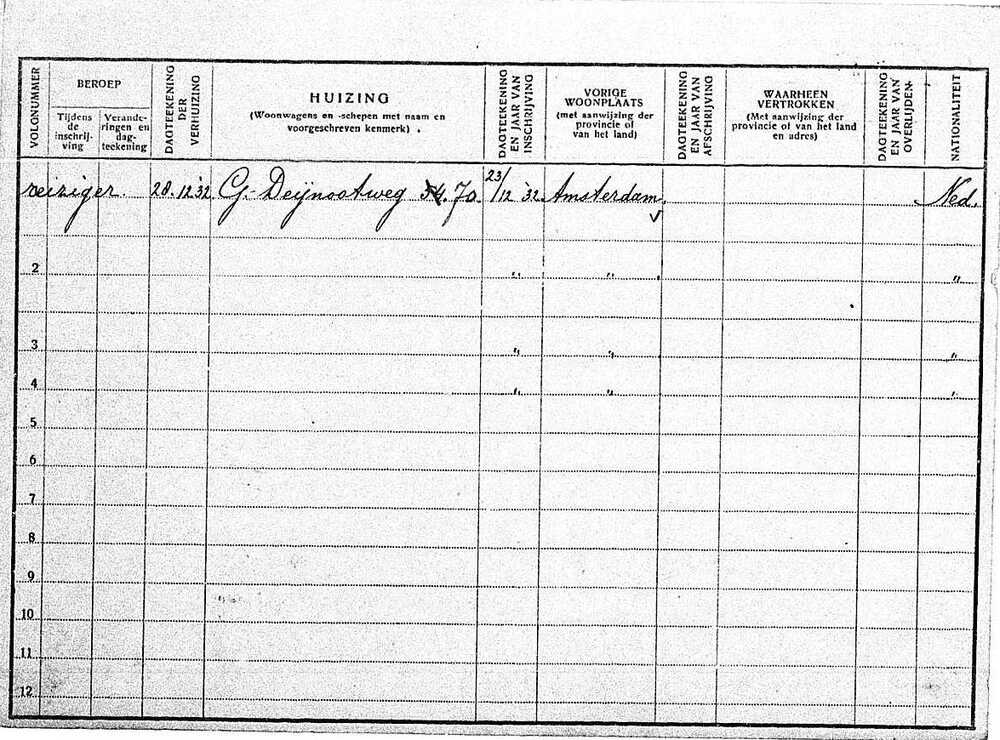 VOLGNUMMER
BEROEP
Tijdens de inschrijving
Veranderingen en dagteekening
DAGTEEKENING DER VERHUIZING
HUIZING
(Woonwagens en -schepen met naam en voorgeschreven kenmerk)
DAGTEEKENING EN JAAR VAN INSCHRIJVING
VORIGE WOONPLAATS
(met aanwijzing der provincie of van het land)
DAGTEEKENING EN JAAR VAN AFSCHRIJVING
WAARHEEN VERTROKKEN
(Met aanwijzing der provincie of van het land en adres)
DAGTEEKENING EN JAAR VAN OVERLIJDEN
NATIONALITEIT
reiziger. 28.12.32 G. Deijnootweg 70. 23/12 '32 Amsterdam Ned.
2 " " "
3 " " "
4 " " "
5
6
7
8
9
10
11
12